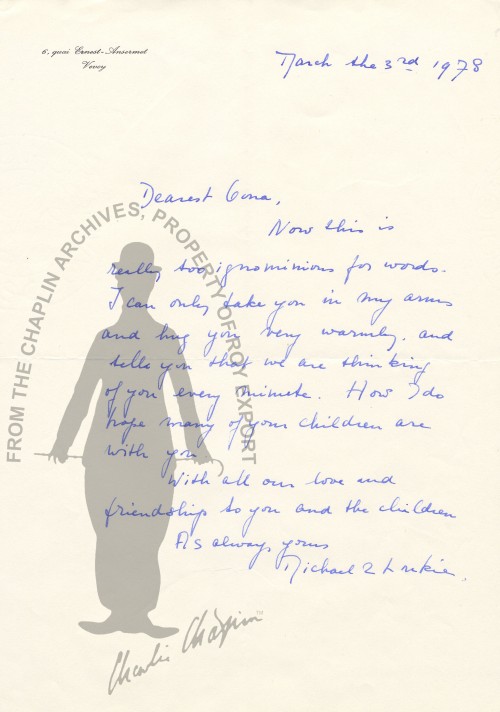 6, quai Ernest-Ansermet
Vevey
March the 3rd 1978
Dearest Oona,
Now this is
really too ignominious for words.
I can only take you in my arms
and hug you very warmly. and
tells you that we are thinking
of you every minute. How I do
hope many of your children are
with you.
With all our love and
friendship to you and the children
As always yours
Michael
FROM THE CHAPLIN ARCHIVES, PROPERTY OF ROY EXPORT
Charlie Chaplin™